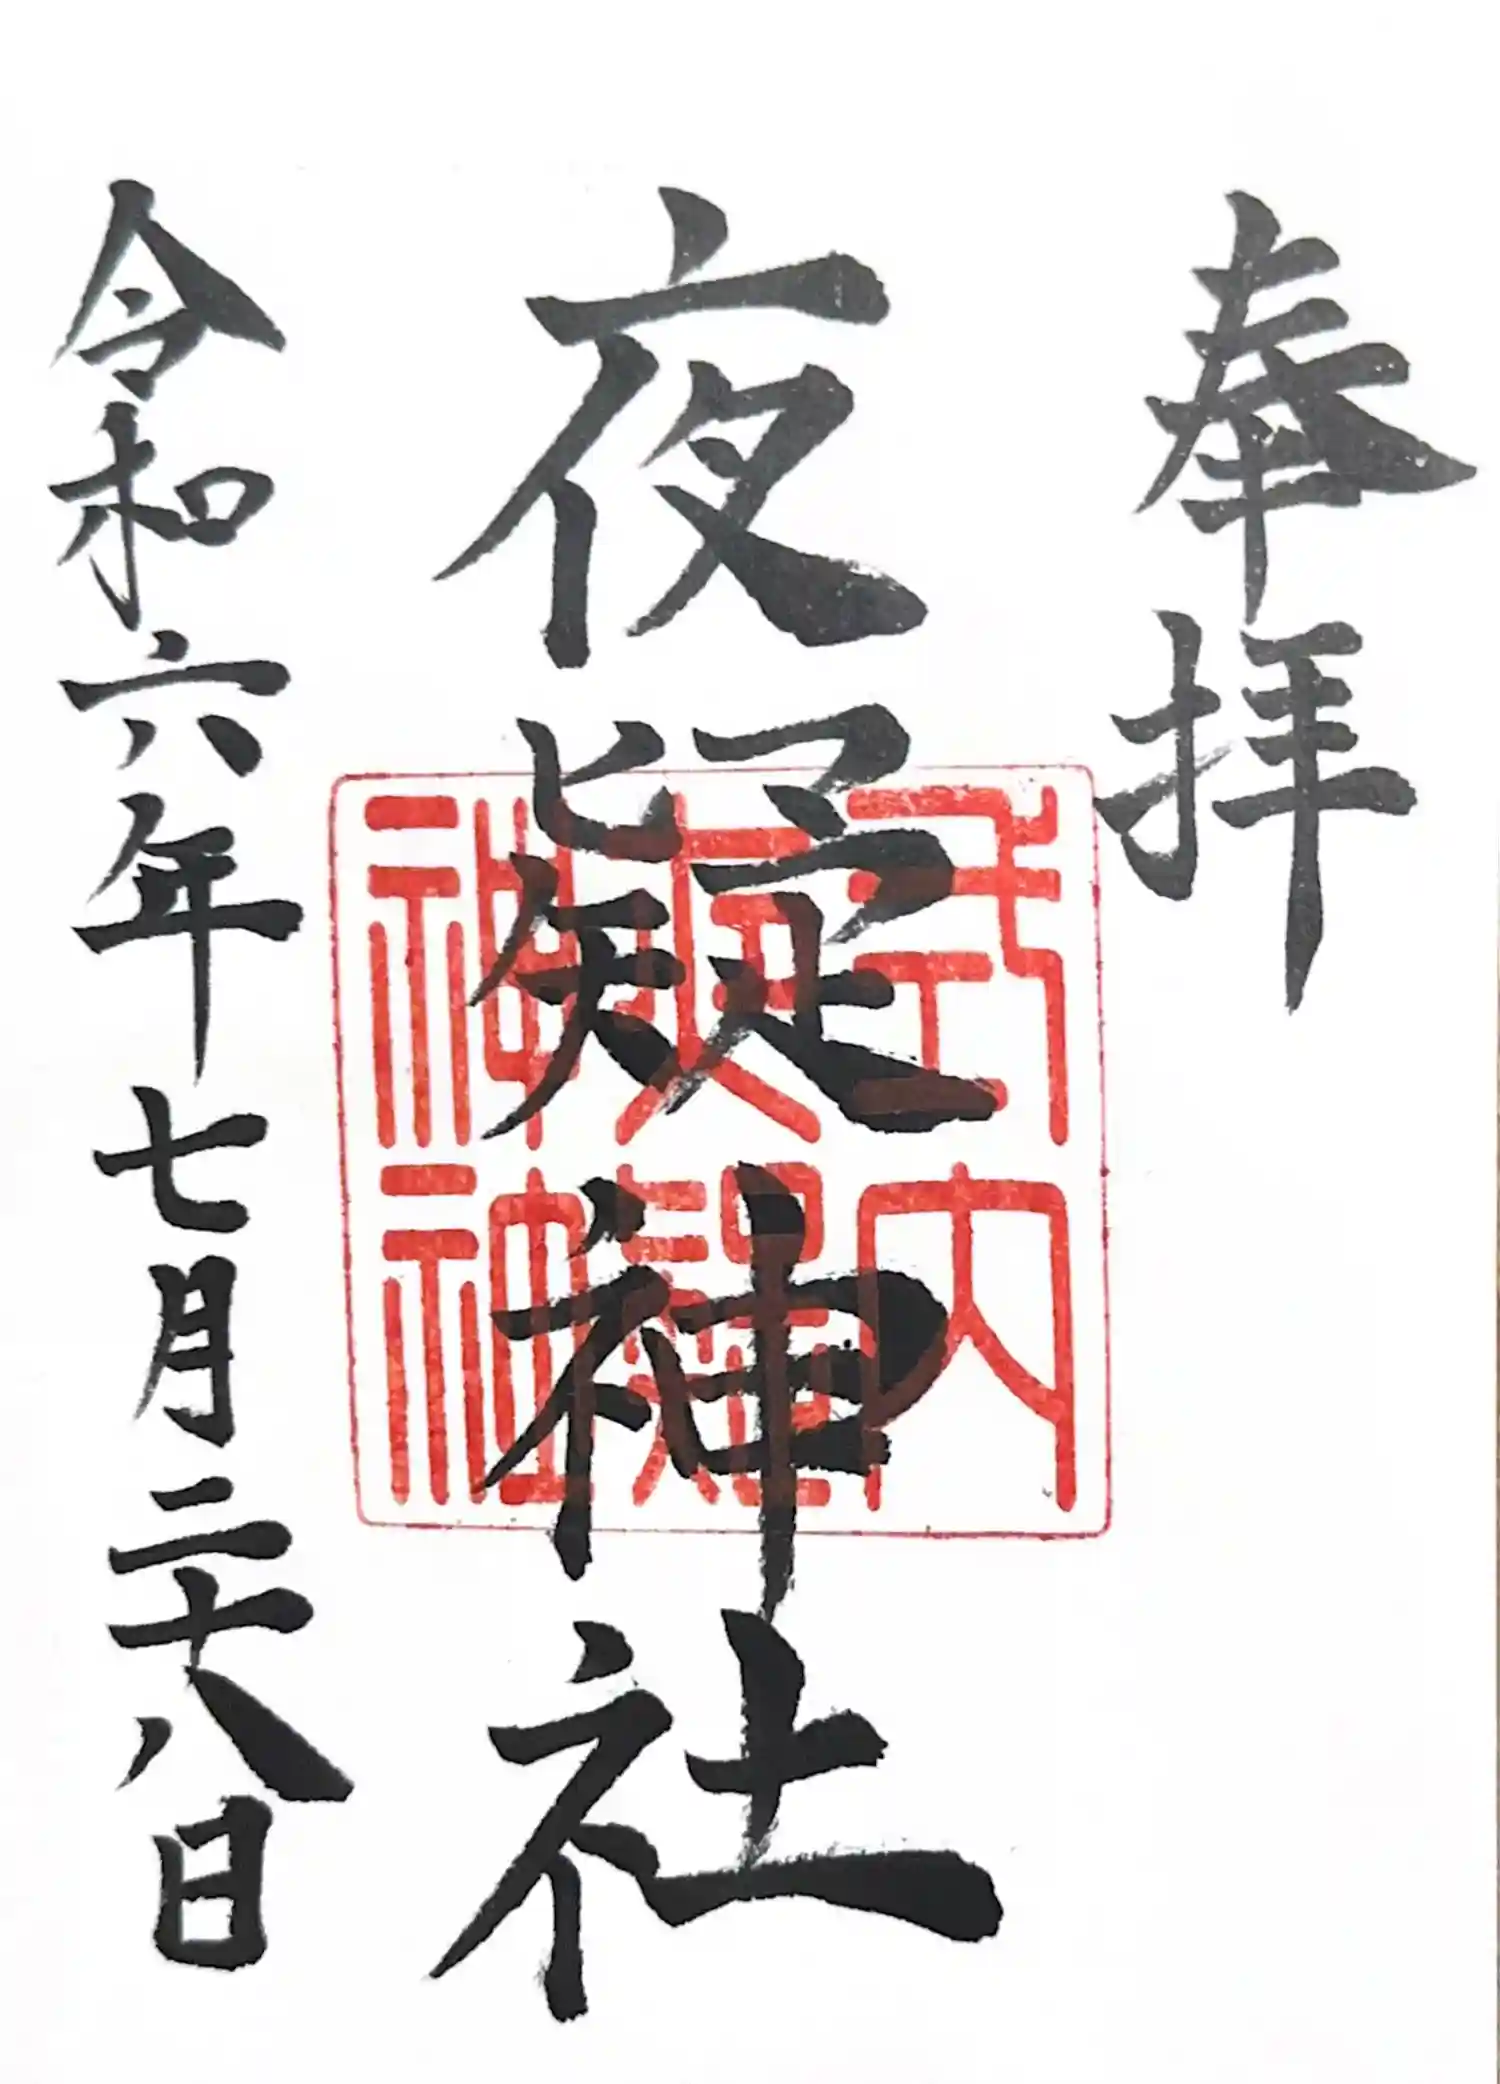 奉拝
夜疑神社
令和六年七月二十八日
式内
夜疑
神